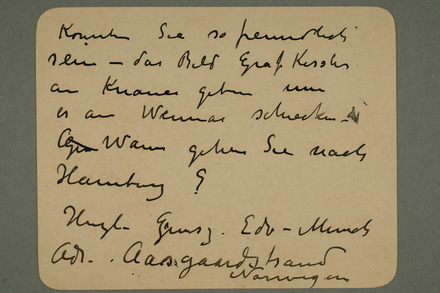 Könnten Sie so freundlich
sein – das Bild Graf Kessler
an Knauer geben um
es an Weimar schicken –
Wann gehen Sie nach
Hamburg ?
Hrzl. Gruss. Edv – Munch
Adr. Aasgaardstrand
Norwegen